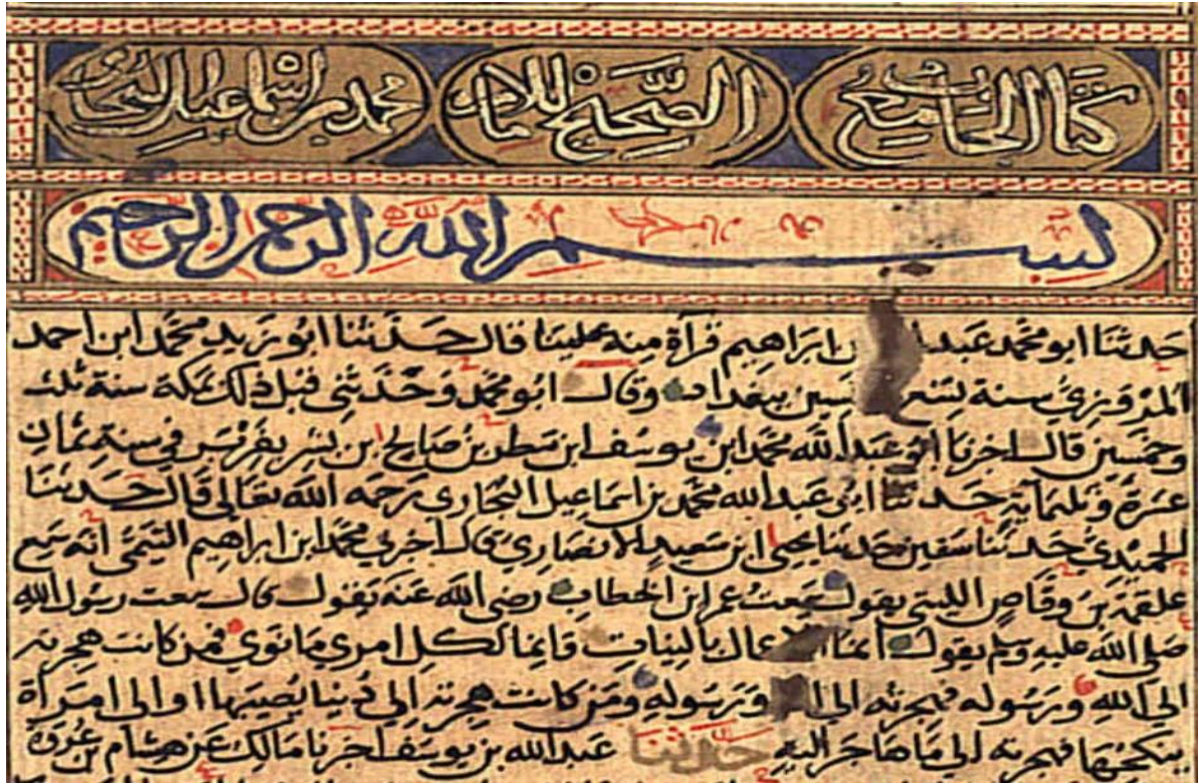 كتاب الجامع الصحيح للامام محمد بن اسماعيل البخاري
بسم الله الرحمن الرحيم
حدثنا ابو محمد عبد ابن ابراهيم قرآة منه علينا قال حدثنا ابو زيد محمد ابن احمد
المروزي سنة تسع بغداد وقال ابو محمد وحدثني قبل ذلك بمكة سنة ثلث
وخمسين قال اخبرنا ابو عبد الله محمد ابن يوسف ابن مطر بن صالح ابن بشر بفربر في سنة ثمان
عشرة وثلثماية حدثنا ابو عبد الله محمد بن اسماعيل البخاري رحمه الله تعالى قال حدثنا
الحميدي حدثنا سفين حدثنا يحيى ابن سعيد الانصاري قال اخبرني محمد ابن ابراهيم التيمي انه سمع
علقمة بن وقاص الليثي يقول سمعت عمر ابن الخطاب رضي الله عنه يقول قال سمعت رسول الله
صلى الله عليه وسلم يقول انما الاعمال بالنيات وانما لكل امرئ ما نوى فمن كانت هجرته
الى الله ورسوله فهجرته الى الله ورسوله ومن كانت هجرته الى دنيا يصيبها او الى امراة
ينكحها فهجرته الى ما هاجر اليه حدثنا عبد الله بن يوسف اخبرنا مالك عن هشام بن عروة